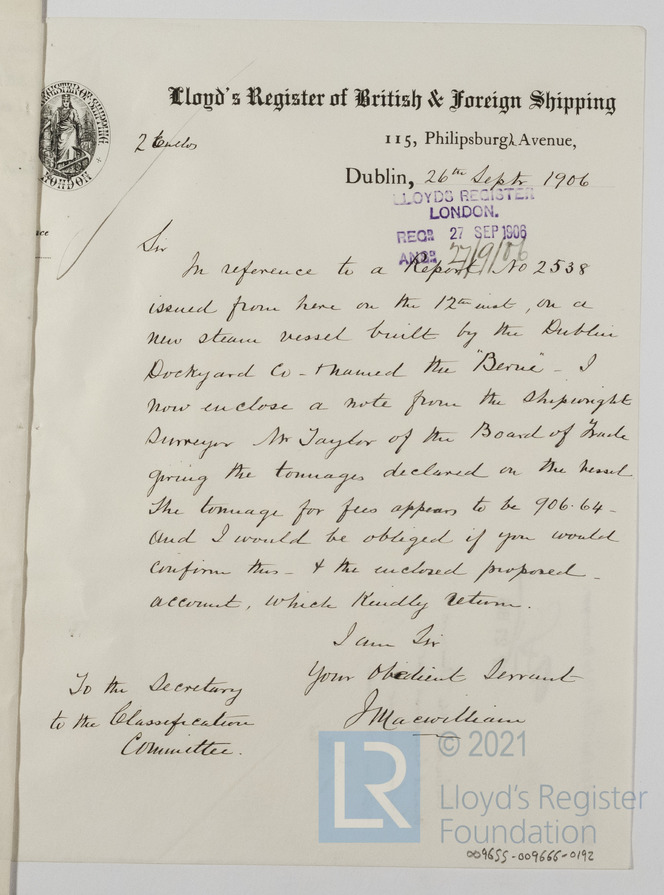 Lloyd's Register of British & Foreign Shipping
2 Enclos
115, Philipsburgh Avenue,
Dublin, 26th Septr 1906
LLOYDS REGISTER
LONDON.
RECD. 27 SEP 1906
ANSD. 27/9/06
Sir
In reference to a Report No 2538
issued from here on the 12th inst, on a
new steam vessel built by the Dublin
Dockyard Co - & named the "Berne" - I
now enclose a note from the Shipwright
Surveyor Mr Taylor of the Board of Trade
giving the tonnages declared on the vessel
The tonnage for fees appears to be 906.64 -
and I would be obliged if you would
confirm this - & the enclosed proposed -
account, which Kindly return.
I am Sir
Your Obedient Servant
J Macwilliam
To the Secretary
to the Classification
Committee.
LONDON
LR © 2021
Lloyd's Register
Foundation
009655-009666-0192